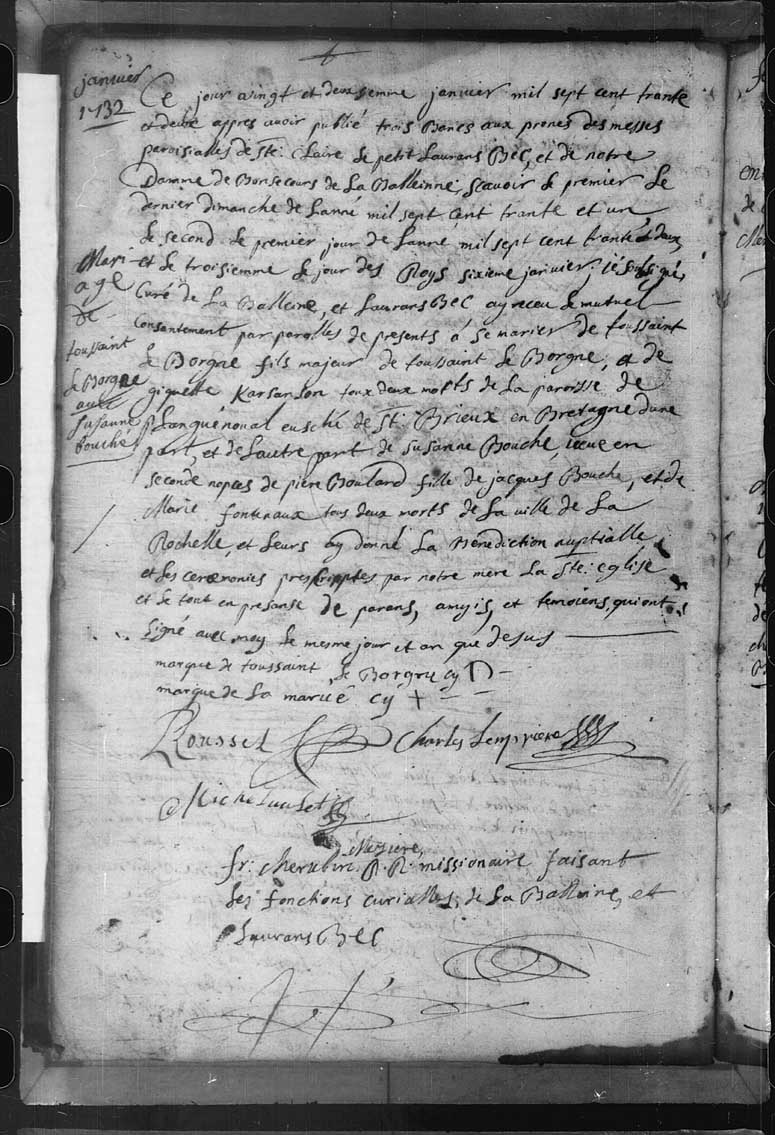 janvier
1732
Ce jour vingt et deuxiemme janvier mil sept cent trante
et deux appres avoir publié trois Bancs aux prones des messes
paroisialles de Ste. Claire de petit Laurans Bec, et de notre
Damme de Bonsecours de La Balleinne, scavoir le premier le
dernier dimanche de Lanné mil sept cent trante et un,
le second le premier jour de Lanné mil sept cent trante et deux,
et le troisiemme le jour des Roys sixieme janvier; je sousigné,
Curé de La Balleine, et Laurans Bec ay receu le mutuel
Consantement par parolles de presents à se marier de toussaint
le Borgne fils majeur de toussaint le Borgne, et de
giquette Karsanson toux deux morts de La paroisse de
planguénoual eusché de St. Brieux en Bretagne dune
part, et de Lautre part de Susanne Bouché, veuve en
seconde nopces de piere Boulard fille de jacques Bouche, et de
Marie fonteneaux tous deux morts de La ville de La
Rochelle, et leurs ay donné La Bénédiction nuptialle,
et les ceremonies prescripttes par notre mere La Ste. eglise
et le tout en presanse de parans, amyis, et temoiens qui ont
signé avec moy le mesme jour et an que desus
Mari-
age
de
toussaint
le Borgne
avec
susanne
bouché
marque de toussaint le Borgne cy
marque de La mariée cy +
Rousset
Charles Lempriere
Michel
fr. cherubin R. R. missionaire faisant
les fonctions curialles, de La Balleine, et
Laurans Bec